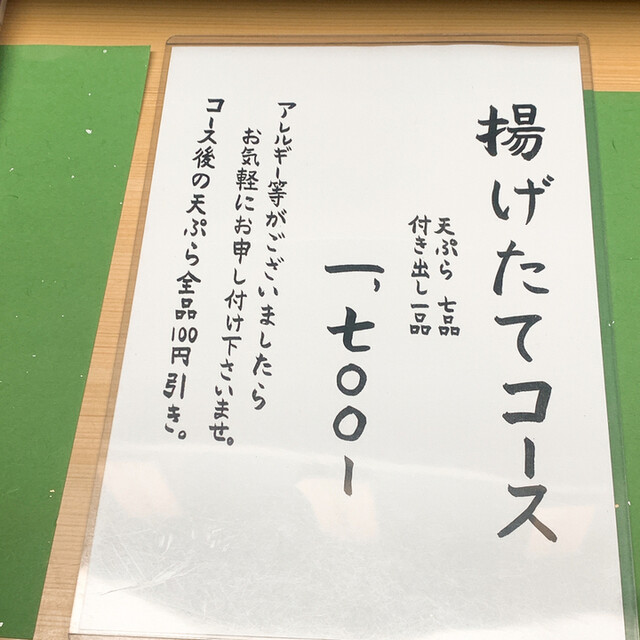 揚げたてコース
天ぷら 七品
付き出し一品
一、七〇〇ー
アレルギー等がございましたら
お気軽にお申し付け下さいませ。
コース後の天ぷら全品100円引き。